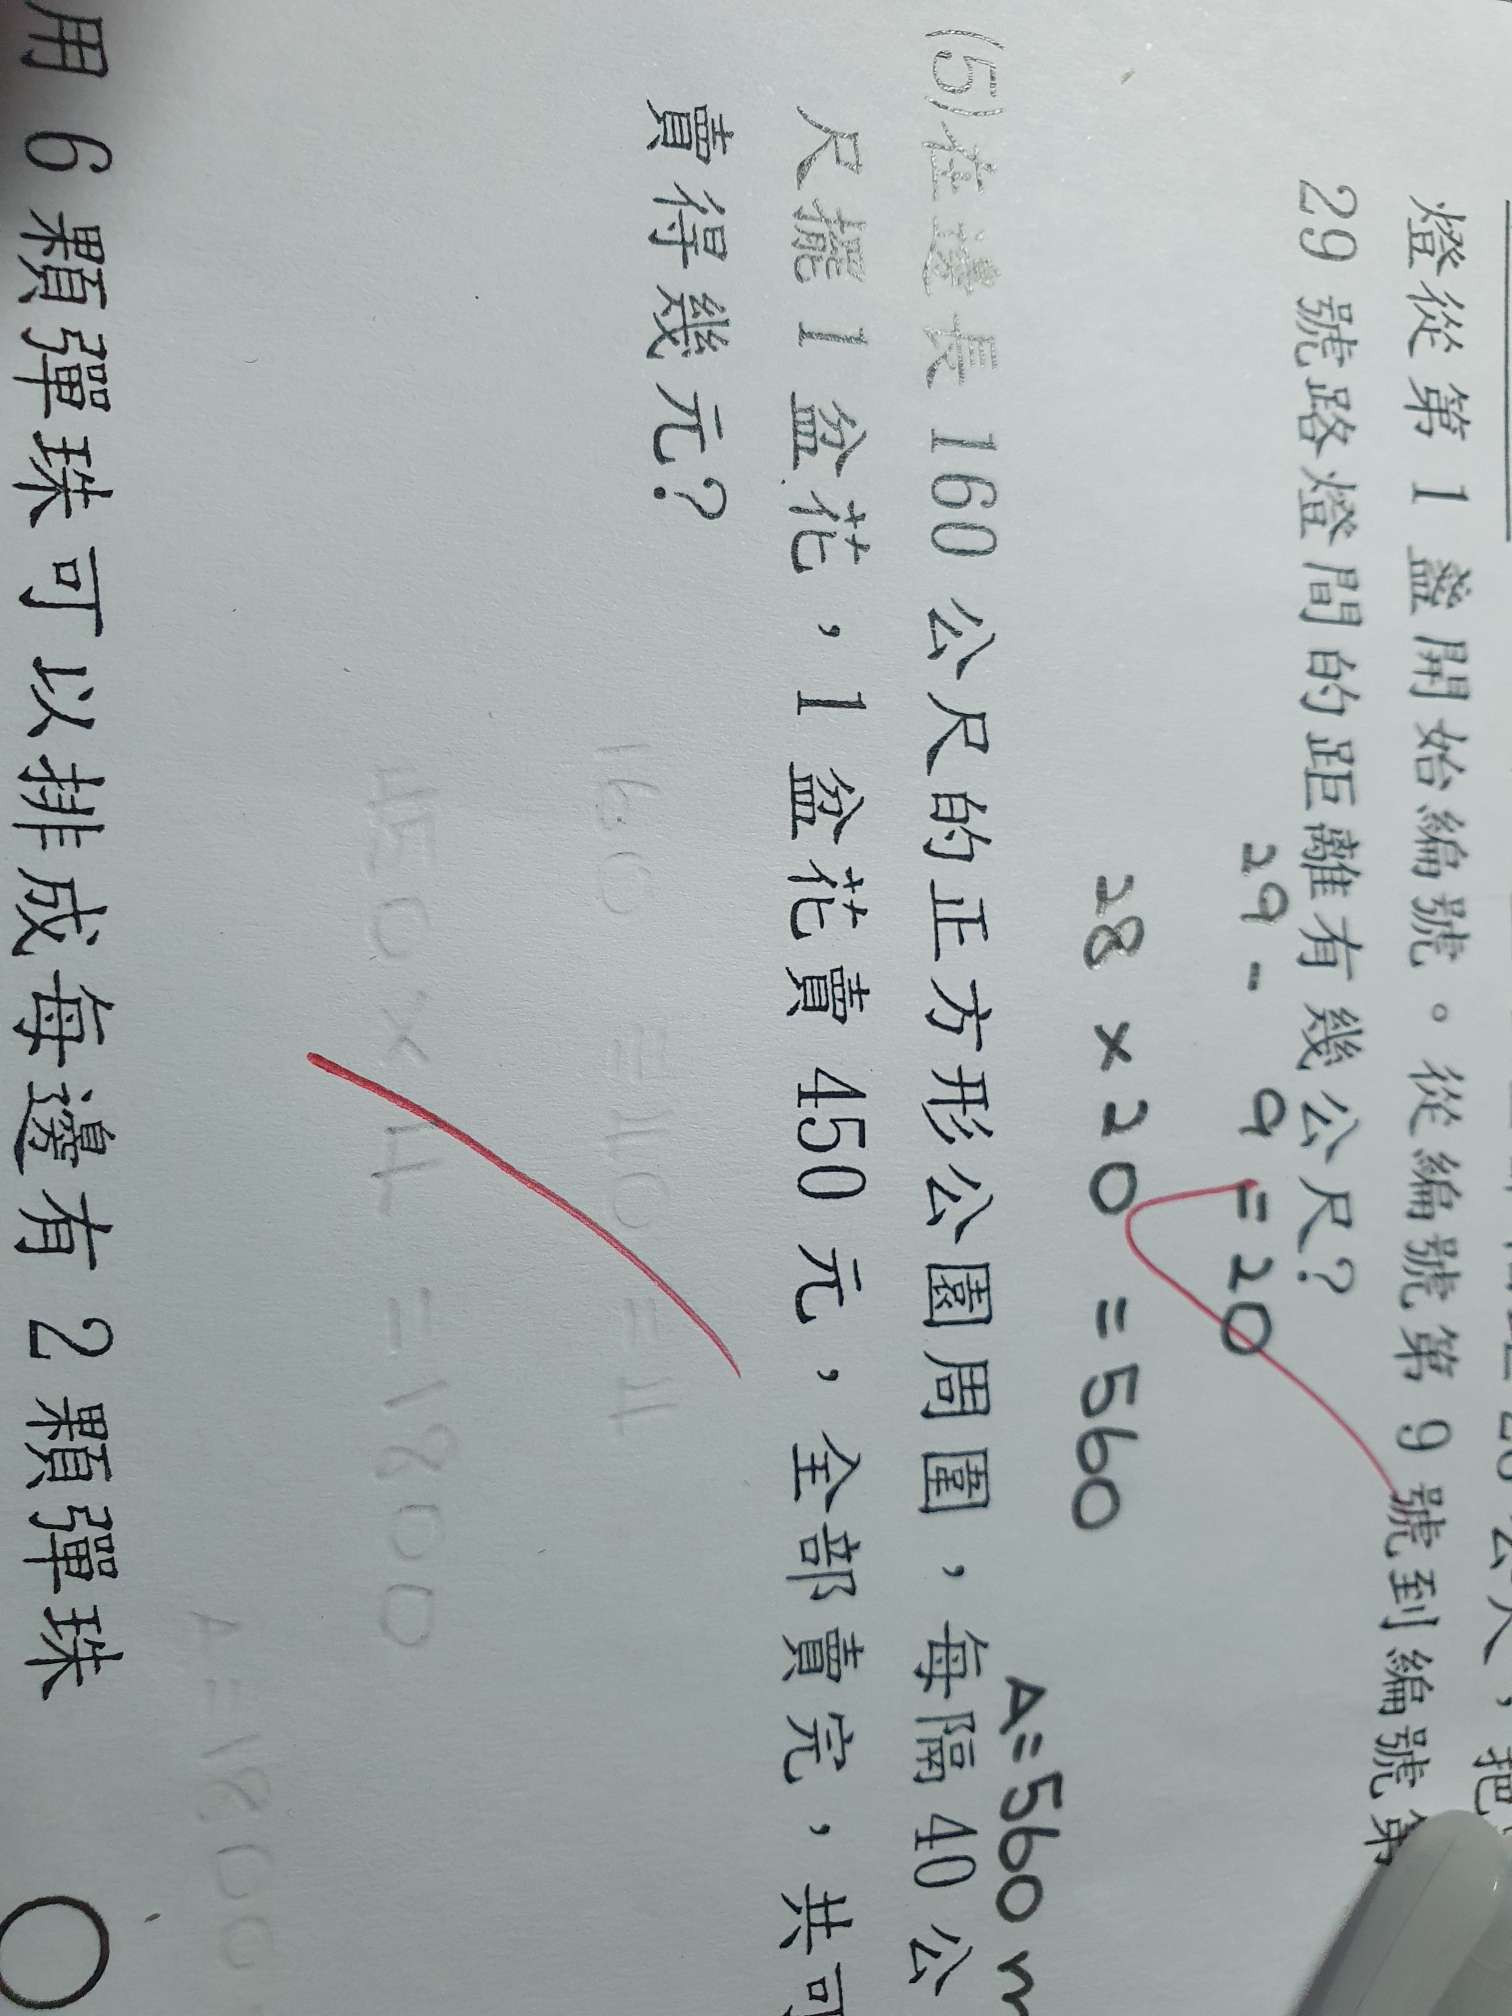 燈從第1盞開始編號。從編號第9號到編號第
29號路燈間的距離有幾公尺?
29-9=20
28×20=560
A=560m
(5)在邊長160公尺的正方形公園周圍,每隔40公
尺擺1盆花,1盆花賣450元,全部賣完,共可
賣得幾元?
160=40=4
450×4=1800
A=1800
用6顆彈珠可以排成每邊有2顆彈珠